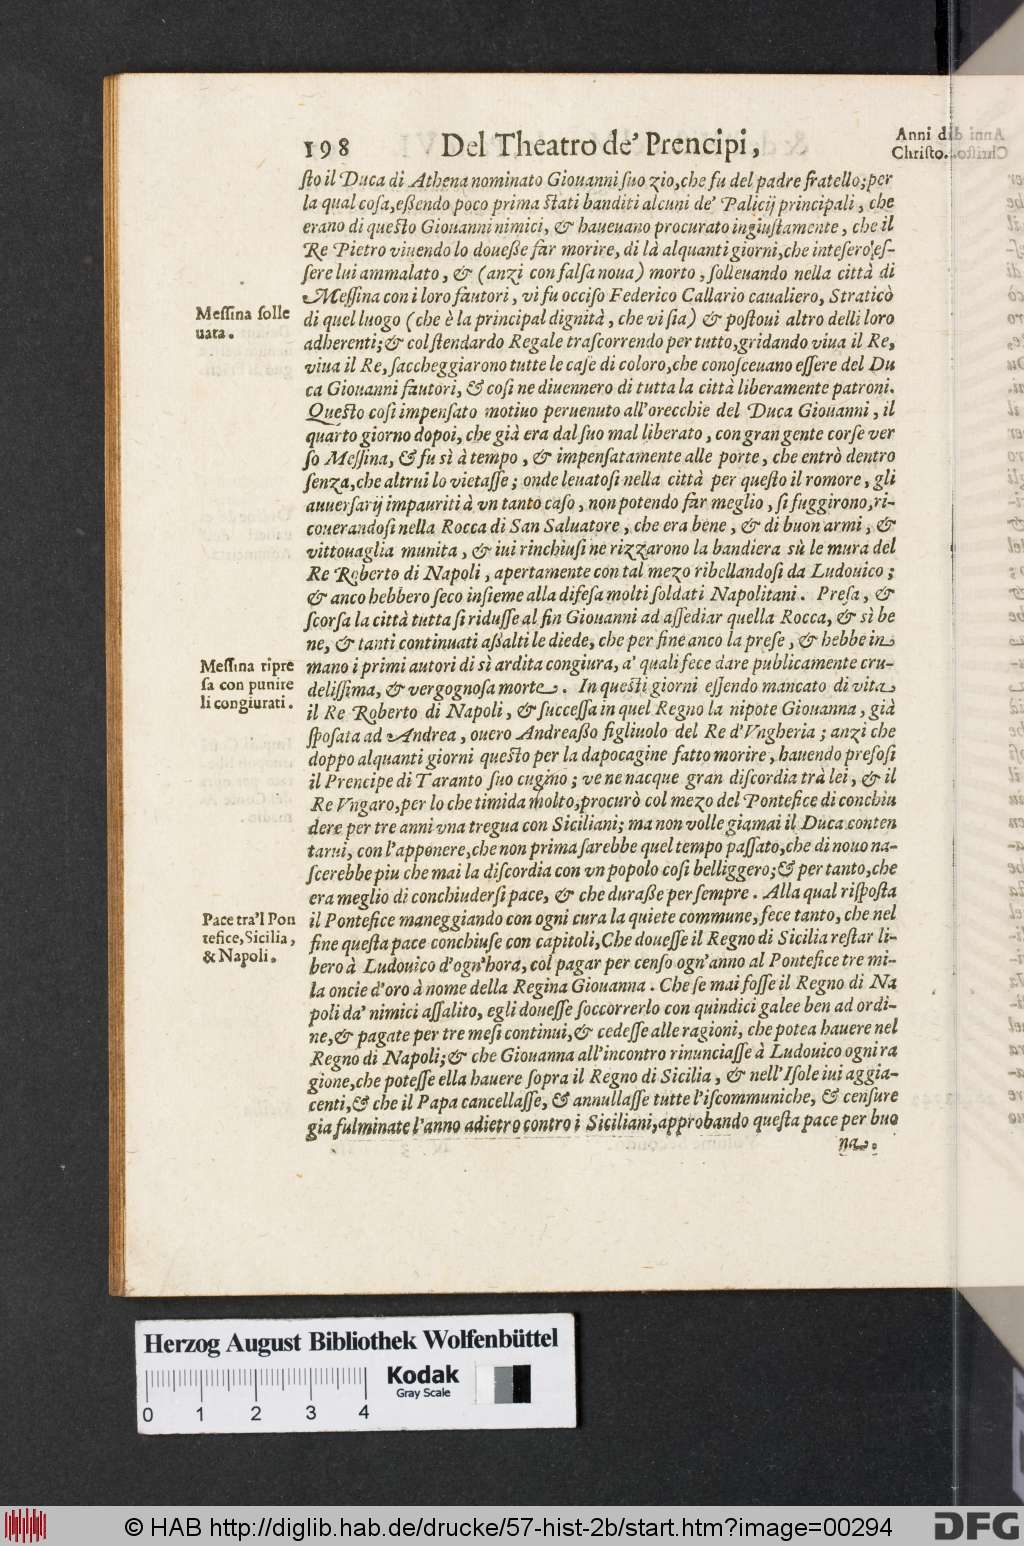 198 Del Theatro de' Prencipi,
Anni di
Christo.
sto il Duca di Athena nominato Giouanni suo zio, che fu del padre fratello; per
la qual cosa, eßendo poco prima stati banditi alcuni de' Palicij principali, che
erano di questo Giouanni nimici, & haueuano procurato ingiustamente, che il
Re Pietro viuendo lo doueße far morire, di là alquanti giorni, che intesero es-
sere lui ammalato, & (anzi con falsa noua) morto, solleuando nella città di
Messina con i loro fautori, vi fu occiso Federico Callario caualiero, Straticò
di quel luogo (che è la principal dignità, che vi sia) & postoui altro delli loro
adherenti; & col stendardo Regale trascorrendo per tutto, gridando viua il Re,
viua il Re, saccheggiarono tutte le case di coloro, che conosceuano essere del Du
ca Giouanni fautori, & cosi ne diuennero di tutta la città liberamente patroni.
Questo cosi impensato motiuo peruenuto all'orecchie del Duca Giouanni, il
quarto giorno dopoi, che già era dal suo mal liberato, con gran gente corse ver
so Messina, & fu sì à tempo, & impensatamente alle porte, che entrò dentro
senza, che altrui lo vietasse; onde leuatosi nella città per questo il romore, gli
auuersarij impauriti à vn tanto caso, non potendo far meglio, si fuggirono, ri-
couerandosi nella Rocca di San Saluatore, che era bene, & di buon armi, &
vittouaglia munita, & iui rinchiusi ne rizzarono la bandiera sù le mura del
Re Roberto di Napoli, apertamente con tal mezo ribellandosi da Ludouico;
& anco hebbero seco insieme alla difesa molti soldati Napolitani. Presa, &
scorsa la città tutta si ridusse al fin Giouanni ad assediar quella Rocca, & sì be
ne, & tanti continuati aßalti le diede, che per fine anco la prese, & hebbe in
mano i primi autori di sì ardita congiura, a' quali fece dare publicamente cru-
delissima, & vergognosa morte. In questi giorni essendo mancato di vita
il Re Roberto di Napoli, & successa in quel Regno la nipote Giouanna, già
sposata ad Andrea, ouero Andreaßo figliuolo del Re d'Vngheria; anzi che
doppo alquanti giorni questo per la dapocagine fatto morire, hauendo presosi
il Prencipe di Taranto suo cugino; ve ne nacque gran discordia trà lei, & il
Re Vngaro, per lo che timida molto, procurò col mezo del Pontefice di conchiu
dere per tre anni vna tregua con Siciliani; ma non volle giamai il Duca conten
tarui, con l'apponere, che non prima sarebbe quel tempo passato, che di nouo na-
scerebbe piu che mai la discordia con vn popolo cosi belliggero; & per tanto, che
era meglio di conchiudersi pace, & che duraße per sempre. Alla qual risposta
il Pontefice maneggiando con ogni cura la quiete commune, fece tanto, che nel
fine questa pace conchiuse con capitoli, Che douesse il Regno di Sicilia restar li-
bero à Ludouico d'ogn'hora, col pagar per censo ogn'anno al Pontefice tre mi-
la oncie d'oro à nome della Regina Giouanna. Che se mai fosse il Regno di Na
poli da' nimici assalito, egli douesse soccorrerlo con quindici galee ben ad ordi-
ne, & pagate per tre mesi continui, & cedesse alle ragioni, che potea hauere nel
Regno di Napoli; & che Giouanna all'incontro rinunciasse à Ludouico ogni ra
gione, che potesse ella hauere sopra il Regno di Sicilia, & nell'Isole iui aggia-
centi, & che il Papa cancellasse, & annullasse tutte l'iscommuniche, & censure
gia fulminate l'anno adietro contro i Siciliani, approbando questa pace per buo
na.
Messina solle
uata.
Messina ripre
sa con punire
li congiurati.
Pace tra'l Pon
tefice, Sicilia,
& Napoli.
Herzog August Bibliothek Wolfenbüttel
0 1 2 3 4
Kodak
Gray Scale
© HAB http://diglib.hab.de/drucke/57-hist-2b/start.htm?image=00294
DFG